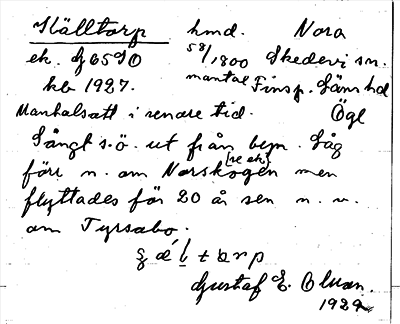 Källtorp hmd. Nora
ek. Gj 6590 58/1800 Skedevi sn.
kb 1927. mantal Finsp. Läns hd
Mantalsatt i senare tid. Ögl
Långt s.ö. ut från byn. Låg
förr n. om Norskogen (se ek) men
flyttades för 20 år sen n. v.
om Tyrsabo.
Gustaf E. Olsson.
1929